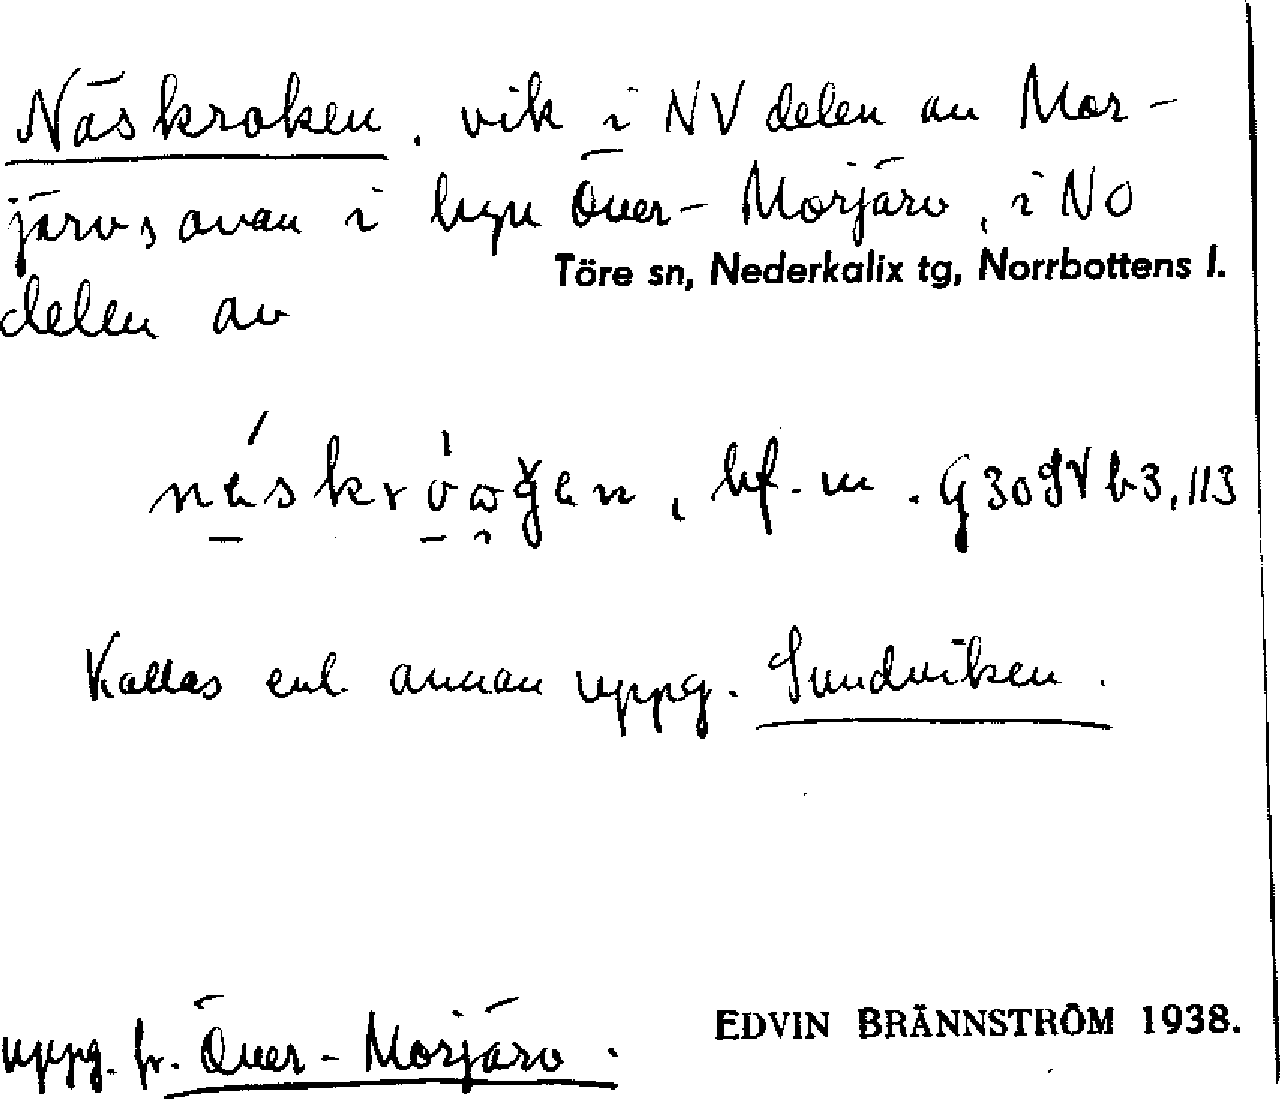 Näskroken, vik i NV delen av Mor-
järvsavan i byn Över-Morjärv, i NO
delen av Töre sn, Nederkalix tg, Norrbottens l.
bf. m. G30 g V b3, 113
Kallas enl. annan uppg. Sundviken.
uppg. fr. Över-Morjärv. EDVIN BRÄNNSTRÖM 1938.